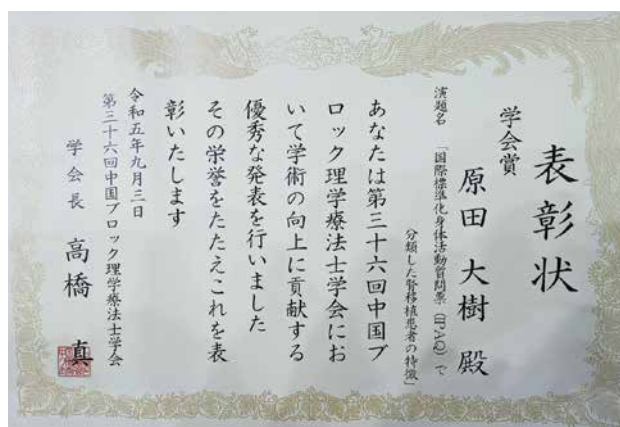 表彰状
学会賞
原田 大樹 殿
演題名 「国際標準化身体活動質問票（IPAQ）で
分類した腎移植患者の特徴」
あなたは第三十六回中国ブ
ロック理学療法士学会にお
いて学術の向上に貢献する
優秀な発表を行いました
その栄誉をたたえこれを表
彰いたします
令和五年九月三日
第三十六回中国ブロック理学療法士学会
学会長 高橋 真